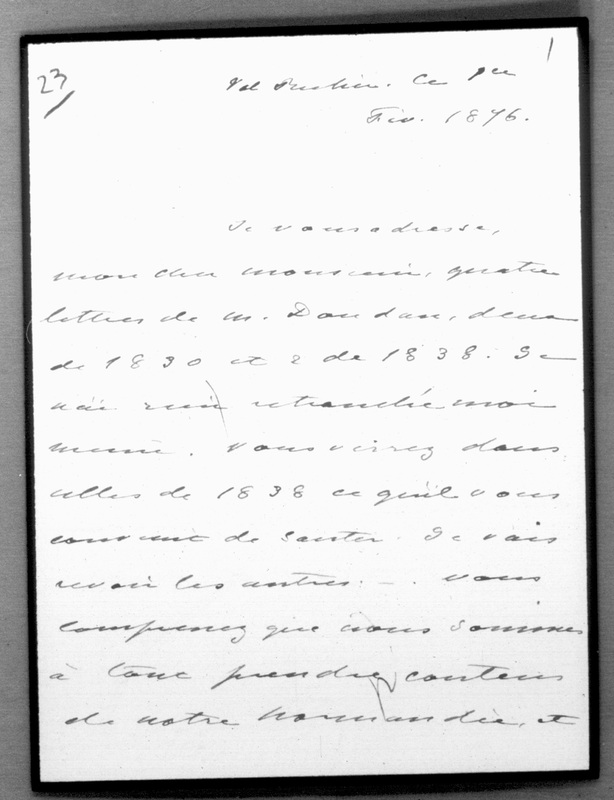 23
1
Val Richer. Ce 1er
Fév. 1876.
Je vous adresse,
mon cher monsieur, quatre
lettres de M. Doudan, deux
de 1830 et 2 de 1838. Je
n'ai rien retranché moi
même. Vous verrez dans
celles de 1838 ce qu'il vous
convient de sauter. Je vais
revoir les autres. — Vous
comprenez que nous sommes
à tout prendre contens
de notre Normandie, et